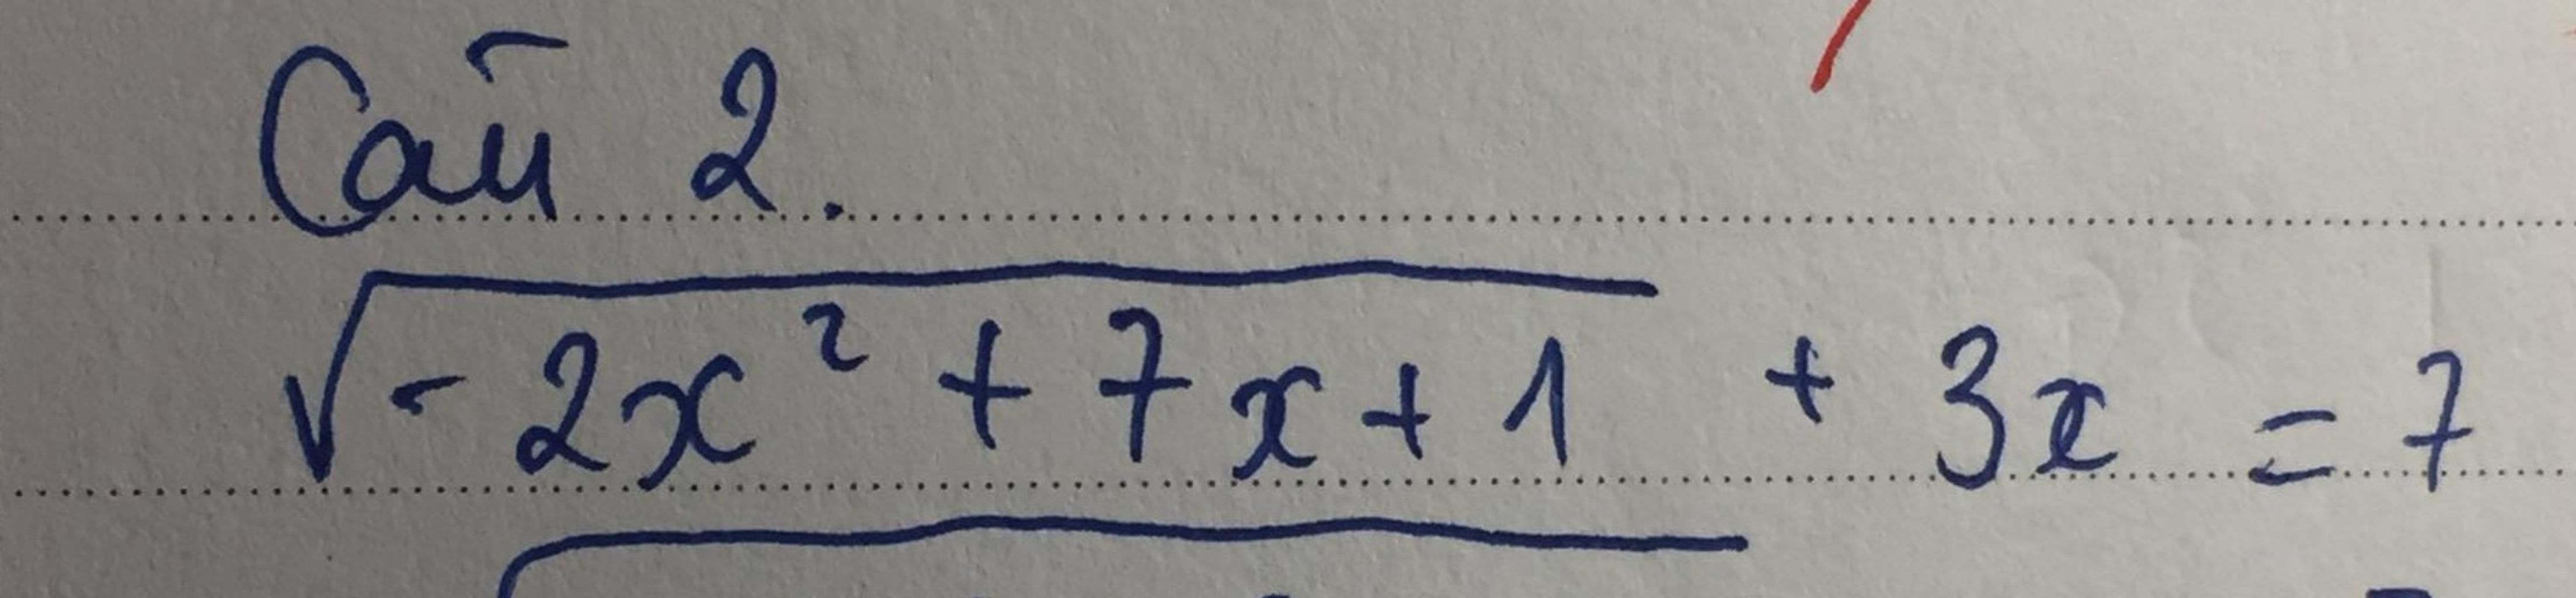 Câu 2.
√-2x² + 7x + 1 + 3x = 7